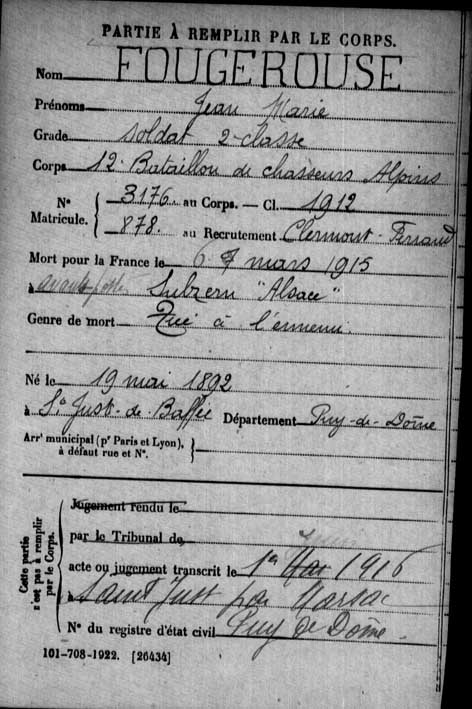 PARTIE À REMPLIR PAR LE CORPS.
Nom FOUGEROUSE
Prénoms Jean Marie
Grade soldat 2e classe
Corps 12e Bataillon de chasseurs Alpins
N° Matricule. { 3176 au Corps. — Cl. 1912
878. au Recrutement Clermont-Ferrand
Mort pour la France le 6 mars 1915
à Sulzern "Alsace"
Genre de mort Tué à l'ennemi.
Né le 19 mai 1892
à St Just-de-Baffie Département Puy-de-Dôme
Arrt municipal (pr Paris et Lyon), à défaut rue et N°. }
Cette partie n'est pas à remplir par le Corps. {
Jugement rendu le
par le Tribunal de
acte ou jugement transcrit le 1er Mai 1916 Juin
à Saint Just par Marsac
N° du registre d'état civil Puy de Dôme.
101-708-1922. [26434]